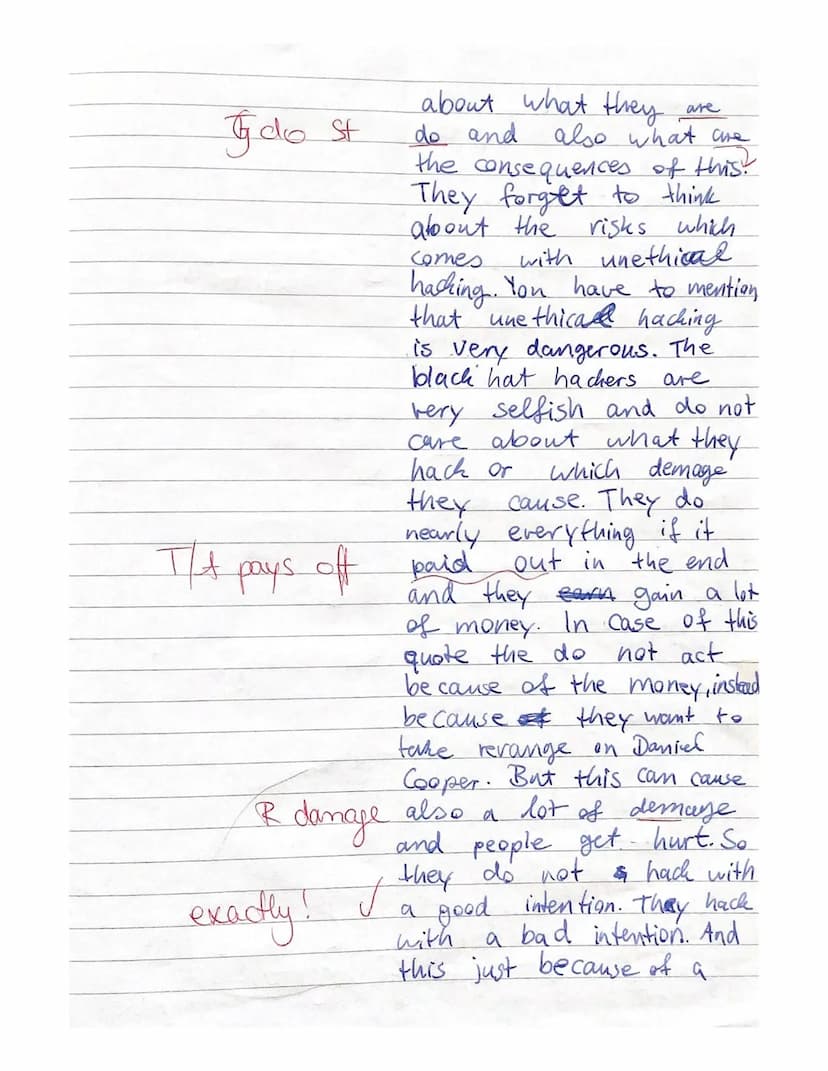 about what they are
Tg do St
do and also what are
the consequences of this.
They forget to think
about the risks which
comes with unethical
hacking. You have to mention
that unethical hacking
is very dangerous. The
black hat hackers are
very selfish and do not
care about what they
hack or which demage
they cause. They do
nearly everything if it
T/A pays off
paid out in the end
and they earn gain a lot
of money. In case of this
quote the do not act
because of the money, instead
because of they want to
take revange on Daniel
Cooper. But this can cause
R damage
also a lot of demage
and people get hurt. So
they do not hack with
exactly! ✓
a good intention. They hack
with a bad intention. And
this just because of a